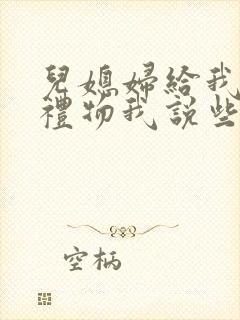 兒媳婦給我
禮物我説些
空柄